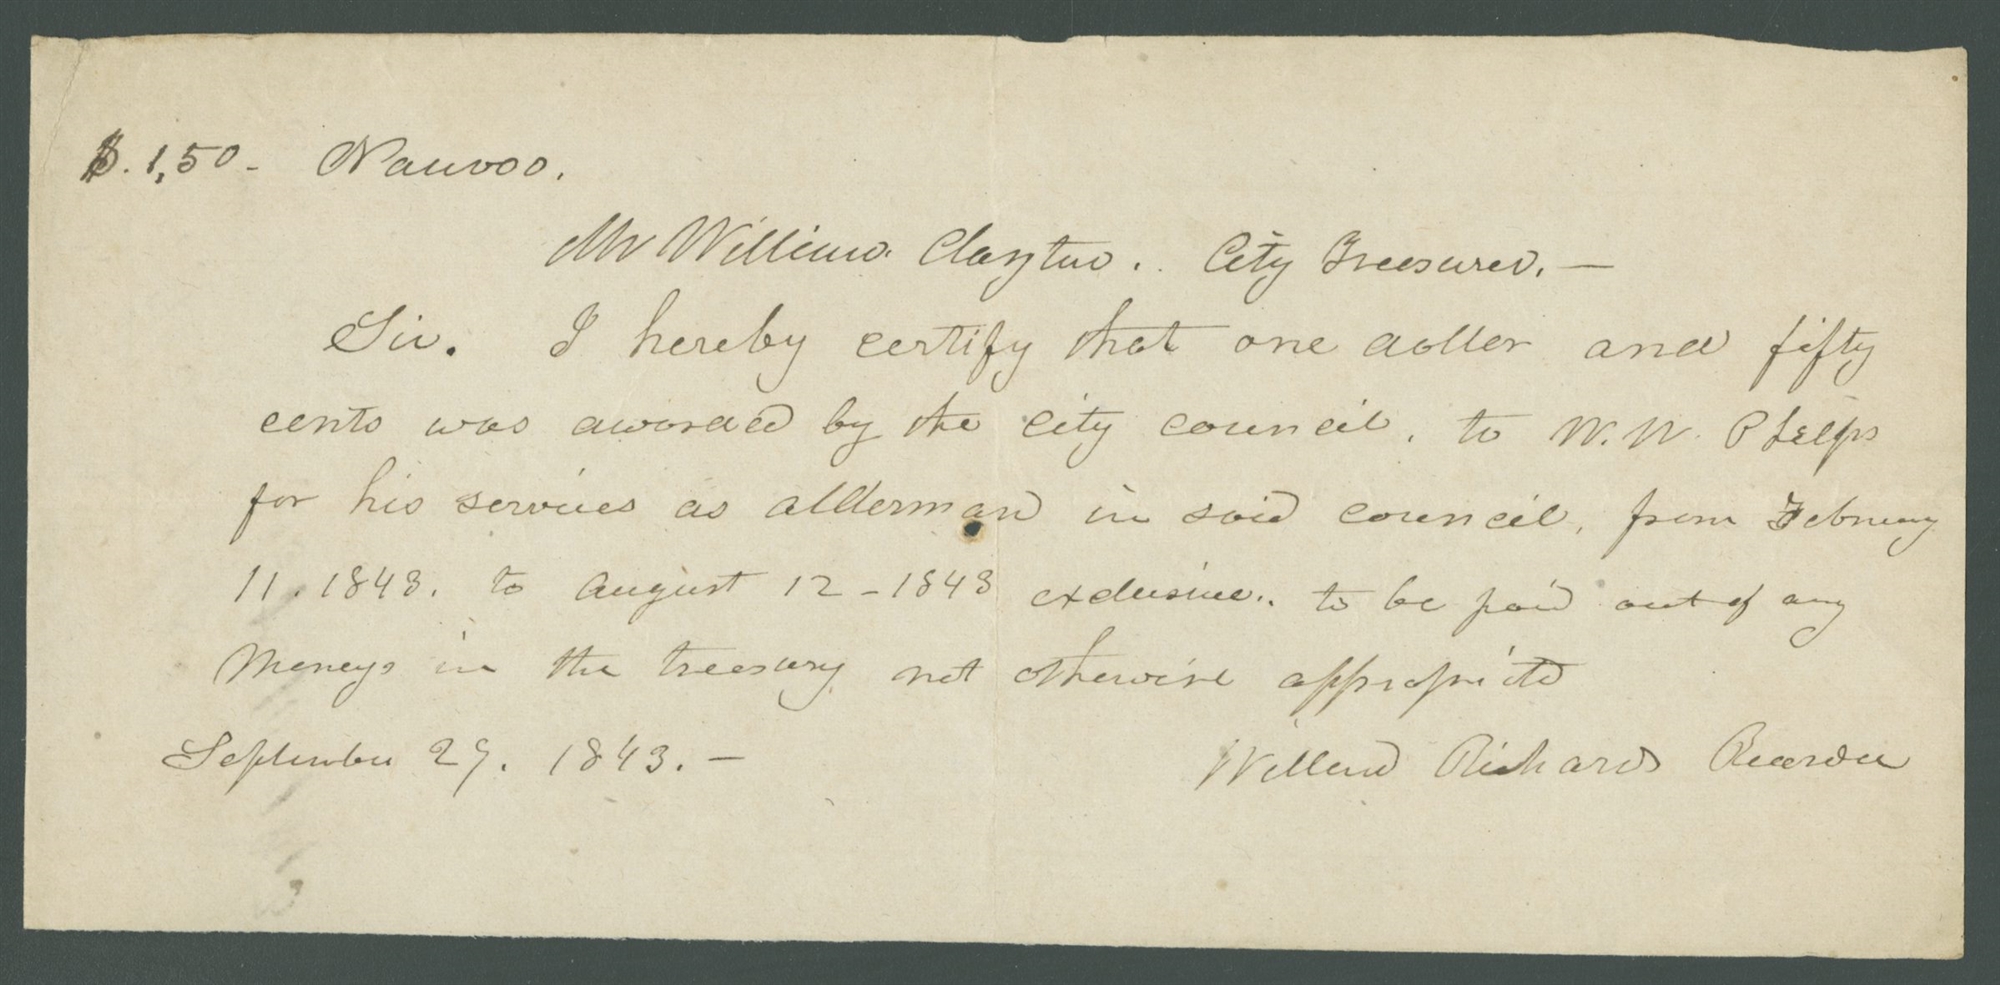 $. 1,50 - Nauvoo.
Mr William Clayton. City Treasurer. —
Sir. I hereby certify that one doller and fifty
cents was awarded by the city council, to W. W. Phelps
for his services as alderman in said council, from February
11. 1843. to august 12 - 1843 exclusive. to be paid out of any
Moneys in the treasury not otherwise appropriated
September 29. 1843. —  Willard Richards Recorder